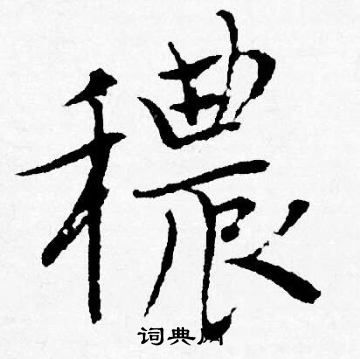 穠
词典网